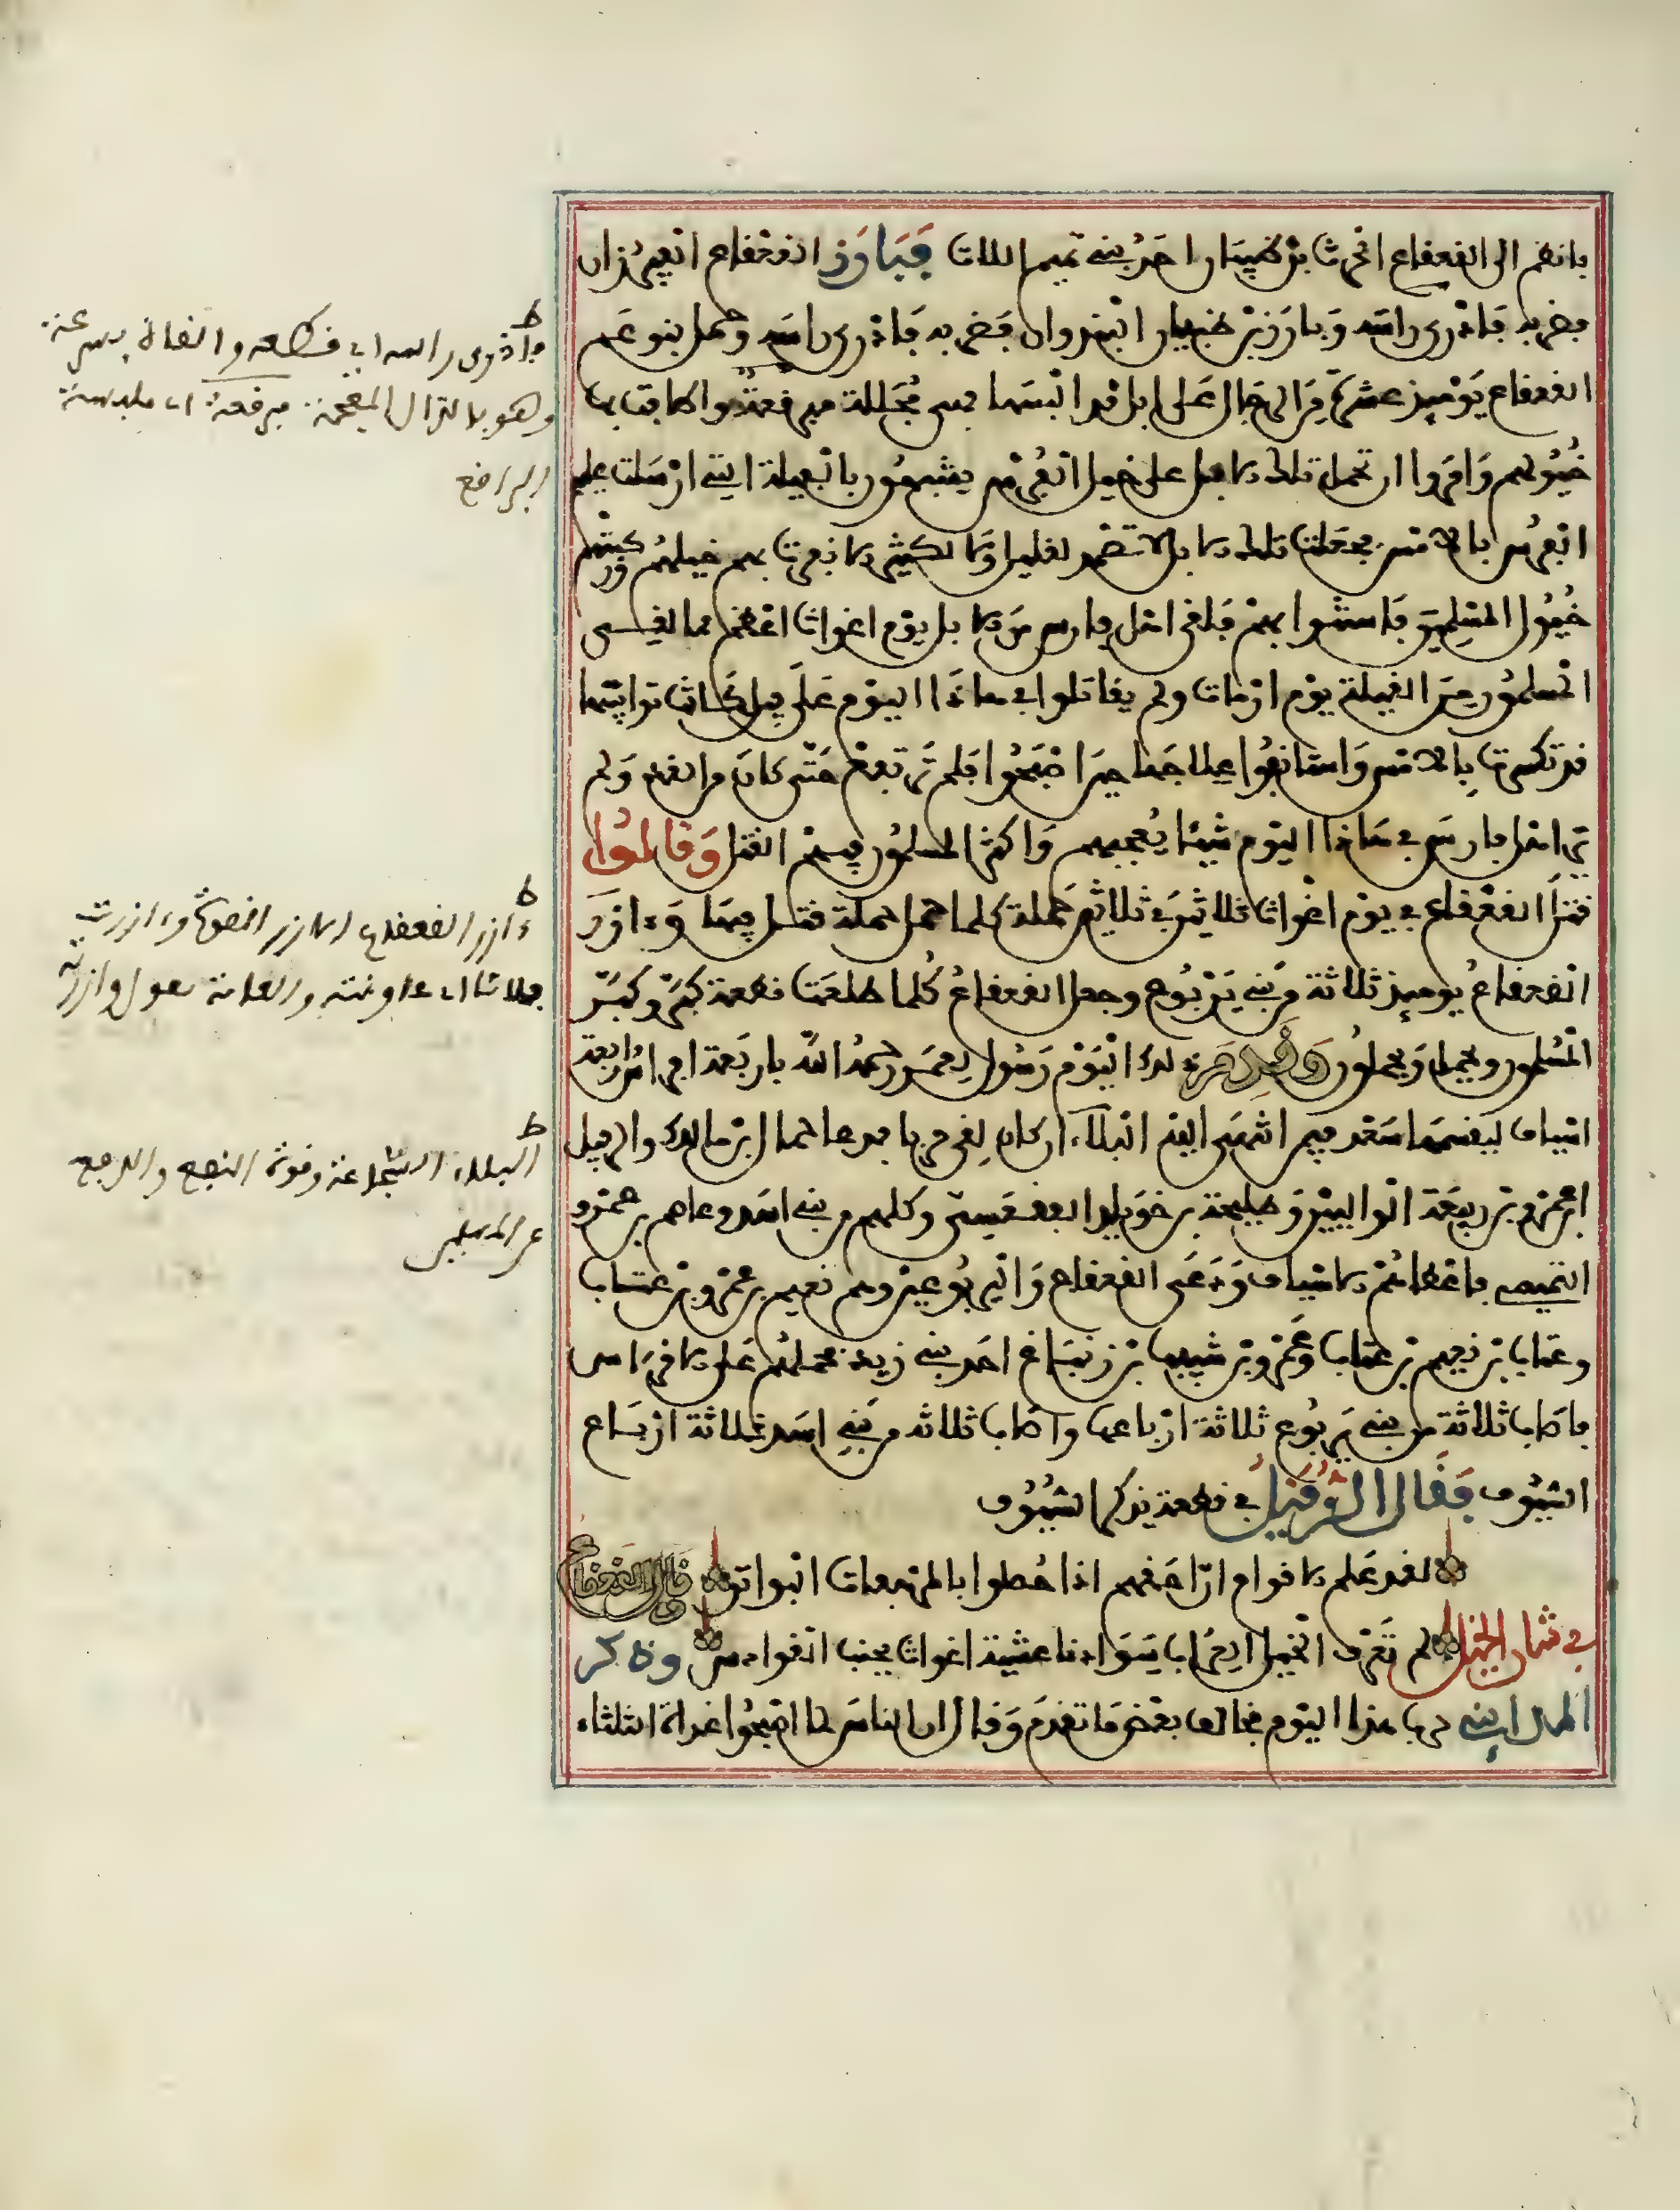 فانضم الى القعقاع الحرث بن ظبيان احد بني تميم اللات فبارز القعقاع الفيرزان
فضربه فاذرى راسه وبارز بن ظبيان البندوان فضربه فاذرى راسه وحمل بنو عم
القعقاع يومئذ عشرة من الرجال على ابل قد البسها فهي مجللة مبرقعة واطافت بها
خيولهم وامروا ان تحمل تلك الابل على خيل الفرس يشبهون بالفيلة التي ارسلت عليهم
الفرس بالامس فجعلت تلك الابل لا تصمد لقليل ولا لكثير الا نفرت بهم خيلهم وركبتهم
خيول المسلمين فاستنوا بهم فلقى اهل فارس من الابل يوم اغواث اعظم مما لقي
المسلمون من الفيلة يوم ارماث ولم يقاتلوا في هاذا اليوم على فيل كانت توابيتها
قد تكسرت بالامس واستانفوا علاجها حين اصبحوا فلم ترتفع حتى كان من الغد ولم
ير اهل فارس في هاذا اليوم شيئا يعجبهم واكثر المسلمون فيهم القتل وقالوا
قتل القعقاع في يوم اغواث ثلاثين في ثلاثين حملة كلما حمل حملة قتل فيها وءازر
القعقاع يومئذ ثلاثة من بني يربوع وجعل القعقاع كلما طلعت قطعة كبر وكبر
المسلمون ويحمل ويحملون وقدم ذلك اليوم رسول لعمر رحمه الله باربعة افراس واربعة
اسياف ليقسمها سعد فيمن انتهى اليه البلاء ان كان لقي حربا فدعا حمال بن مالك والرفيل
بن عمرو بن ربيعة الوالبيين وطليحة بن خويلد الفقعسي وكلهم من بني اسد وعاصم بن عمرو
التميمي فاعطاهم الاسياف ودعى القعقاع واليربوعيين وهم نعيم بن عمرو بن عتاب
وعتاب بن نعيم بن عتاب وعمرو بن شبيب بن زنباع احد بني زيد فحملهم على الافراس
فاصاب ثلاثة من بني يربوع ثلاثة ارباعها واصاب ثلاثه من بني اسد ثلاثة ارباع
السيوف فقال الرفيل في قطعة يذكر السيوف
لقد علم الاقوام انا احقهم اذا حصلوا بالمرهفات البواتر قال القعقاع
في شان الخيل لم تعرف الخيل العراب سواءنا عشية اغواث بجنب القوادس وذكر
المدايني حرب هذا اليوم فخالف بعض ما تقدم وقال ان الناس لما اصبحوا غداة الثلثاء
ط
فاذرى راسه اي قطعه والقاه بسرعة
وهو بالذال المعجمة مبرقعة اي ملبسة
البراقع
ط
ءازر القعقاع الازر القوة وءازرت
فلانا اي عاونته والعامة تقول وازرته
ط
البلاء الشجاعة وقوة النفع والدفع
عن المسلمين